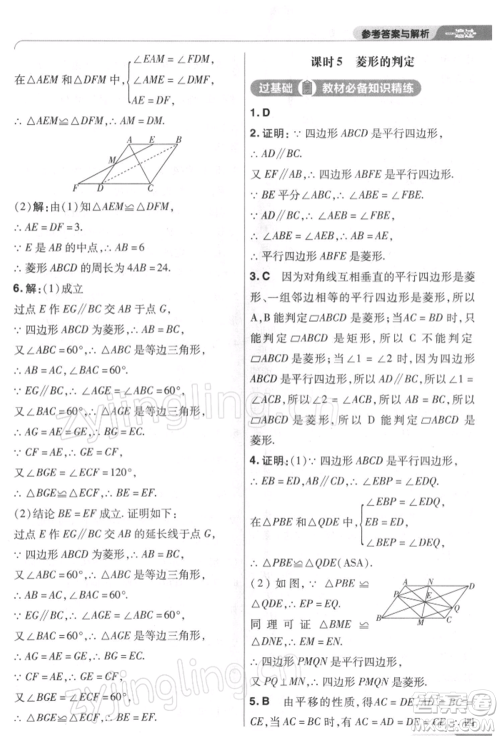 参考答案与解析
一遍过
在△AEM 和△DFM 中, {∠EAM = ∠FDM ∠AEM = ∠DFM AE = DF
∴ △AEM≌△DFM,∴ AM = DM.
A E B M F D C
(2)解:由(1)知△AEM≌△DFM,
∴ AE = DF = 3.
∵ E 是 AB 的中点,∴ AB = 6
∴ 菱形 ABCD 的周长为 4AB = 24.
6.解:(1)成立
过点 E 作 EG∥BC 交 AB 于点 G,
∵ 四边形 ABCD 为菱形,∴ AB = BC,
又∠ABC = 60°,∴ △ABC 是等边三角形,
∴ AB = AC, ∠BAC = 60°,
∵ EG∥BC,∴ △AGE 是等边三角形,
∴ AG = AE = GE,∴ BG = CE.
∵ CF = AE,∴ GE = CF,
又∠BGE = ∠ECF = 120°,
∴ △BGE≌△ECF,∴ BE = EF.
(2)结论 BE = EF 成立. 证明如下:
过点 E 作 EG∥BC 交 AB 的延长线于点 G,
∵ 四边形 ABCD 为菱形,∴ AB = BC,
又∠ABC = 60°,∴ △ABC 是等边三角形,
∴ AB = AC, ∠BAC = 60°,
∵ EG∥BC,∴ △AGE 是等边三角形,
∴ AG = AE = GE,∴ BG = CE.
∵ CF = AE,∴ GE = CF,
又∠BGE = ∠ECF = 60°,
∴ △BGE≌△ECF,∴ BE = EF.
课时 5 菱形的判定
过基础 教材必备知识精练
1. D
2. 证明:∵ 四边形 ABCD 是平行四边形,
∴ AD∥BC.
又 EF∥AB,∴ 四边形 ABFE 是平行四边形.
∵ BE 平分∠ABC,∴ ∠ABE = ∠FBE.
∵ AD∥BC,∴ ∠AEB = ∠EBF,
∴ ∠ABE = ∠AEB,∴ AB = AE,
∴ 平行四边形 ABFE 是菱形.
3. C 因为对角线互相垂直的平行四边形是菱形、一组邻边相等的平行四边形是菱形,所以 A,B 能判定▱ABCD 是菱形;当 AC = BD 时,▱ABCD 是矩形,所以 C 不能判定▱ABCD 是菱形;当∠1 = ∠2 时,因为四边形 ABCD 是平行四边形,所以 AD∥BC,所以∠1 = ∠ACB,所以∠2 = ∠ACB,所以 AB = BC,所以▱ABCD 是菱形,所以 D 能判定▱ABCD 是菱形.
4. 证明:(1)∵ 四边形 ABCD 是平行四边形,
∴ EB = ED, AB∥CD,∴ ∠EBP = ∠EDQ,
在△PBE 和△QDE 中, {∠EBP = ∠EDQ EB = ED ∠BEP = ∠DEQ,
∴ △PBE≌△QDE(ASA).
(2)如图,∵ △PBE≌△QDE,∴ EP = EQ,
同理可证△BME≌△DNE,∴ EM = EN,
A N D P E Q B M C
∴ 四边形 PMQN 是平行四边形,
∵ PQ⊥MN,∴ 四边形 PMQN 是菱形.
5. B 由平移的性质,得 AC = DE, AD = BC = CE,当 AC = BC 时,AC = DE = AD = CE,∴ 四
zyjingling.com
zyjingling.com
答案圈
MXQE.COM